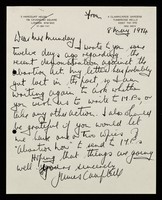 From
8 May 1974
Dear Mrs Munday
I wrote to you some
twelve days ago regarding the
recent demonstration against the
abortion Act. My letter has probably
got lost in the Post so I am
writing again to ask whether
you wish us to write to M.P.s or
take any other action. I also should
be grateful if you would let
me have six other copies of
"Abortion Now" to send to M.P.s
Hoping that things are going
well
Yours sincerely
James Campbell